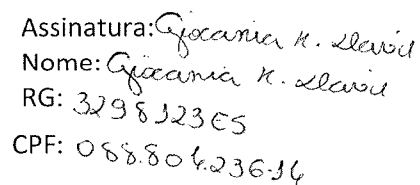 Assinatura: Giovania K. Davil
Nome: Giovania K. Davil
RG: 3298123ES
CPF: 088.804.236-14